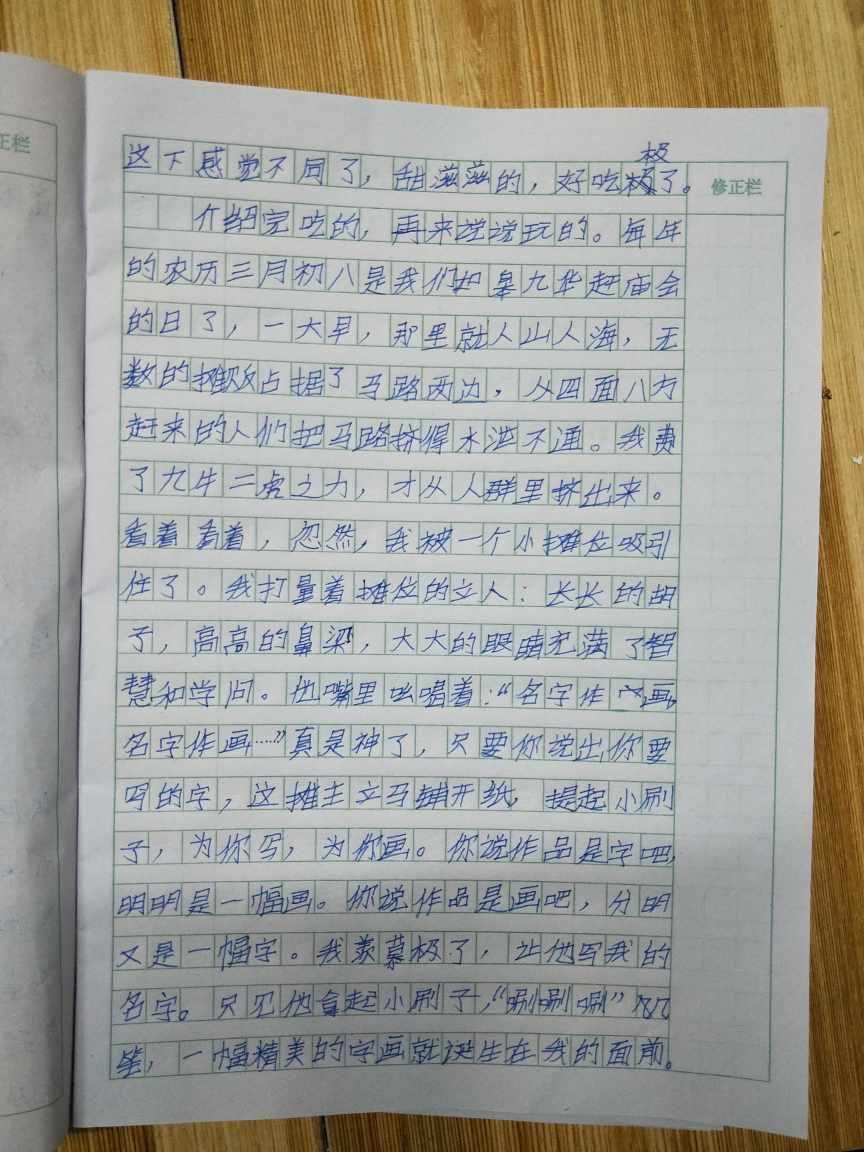 正栏
修正栏
极
这下感觉不同了，甜滋滋的，好吃极了。
介绍完吃的，再来说说玩的。每年
的农历三月初八是我们如皋九华赶庙会
的日了，一大早，那里就人山人海，无
数的摊贩占据了马路两边，从四面八方
赶来的人们把马路挤得水泄不通。我费
了九牛二虎之力，才从人群里挤出来。
看着看着，忽然，我被一个小摊位吸引
住了。我打量着摊位的主人：长长的胡
子，高高的鼻梁，大大的眼睛充满了智
慧和学问。他嘴里吆喝着：“名字作画，
名字作画……”真是神了，只要你说出你要
写的字，这摊主立马铺开纸，提起小刷
子，为你写，为你画。你说作品是字吧，
明明是一幅画。你说作品是画吧，分明
又是一幅字。我羡慕极了，让他写我的
名字。只见他拿起小刷子，“唰唰唰”几
笔，一幅精美的字画就诞生在我的面前。